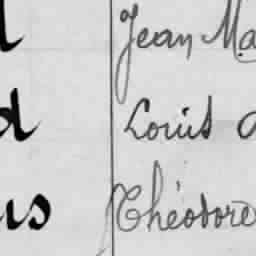 Jean Ma
Louis
us Théodore